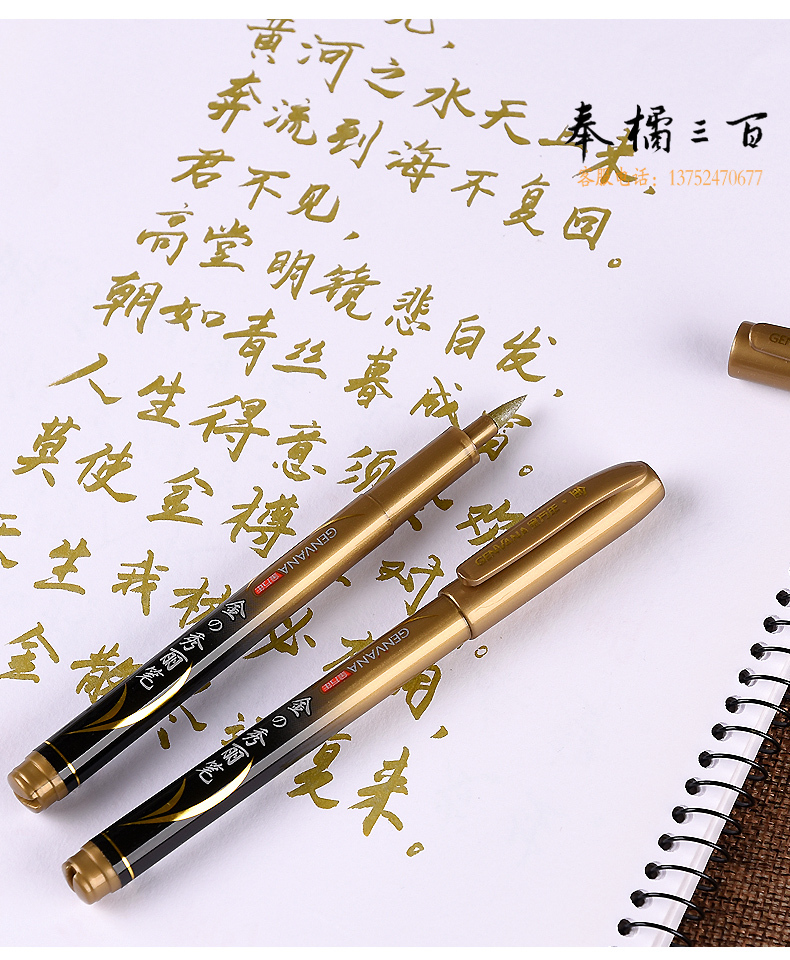 见，
黄河之水天上来，
奔流到海不复回。
君不见，
高堂明镜悲白发，
朝如青丝暮成雪。
人生得意须
莫使金樽 对
天生我材必有用，
金散 还复来。
奉橘三百
客服电话：13752470677
GENVANA 金万年
金の秀丽笔
GENVANA 金万年
GENVANA 金万年
金の秀丽笔
GEN